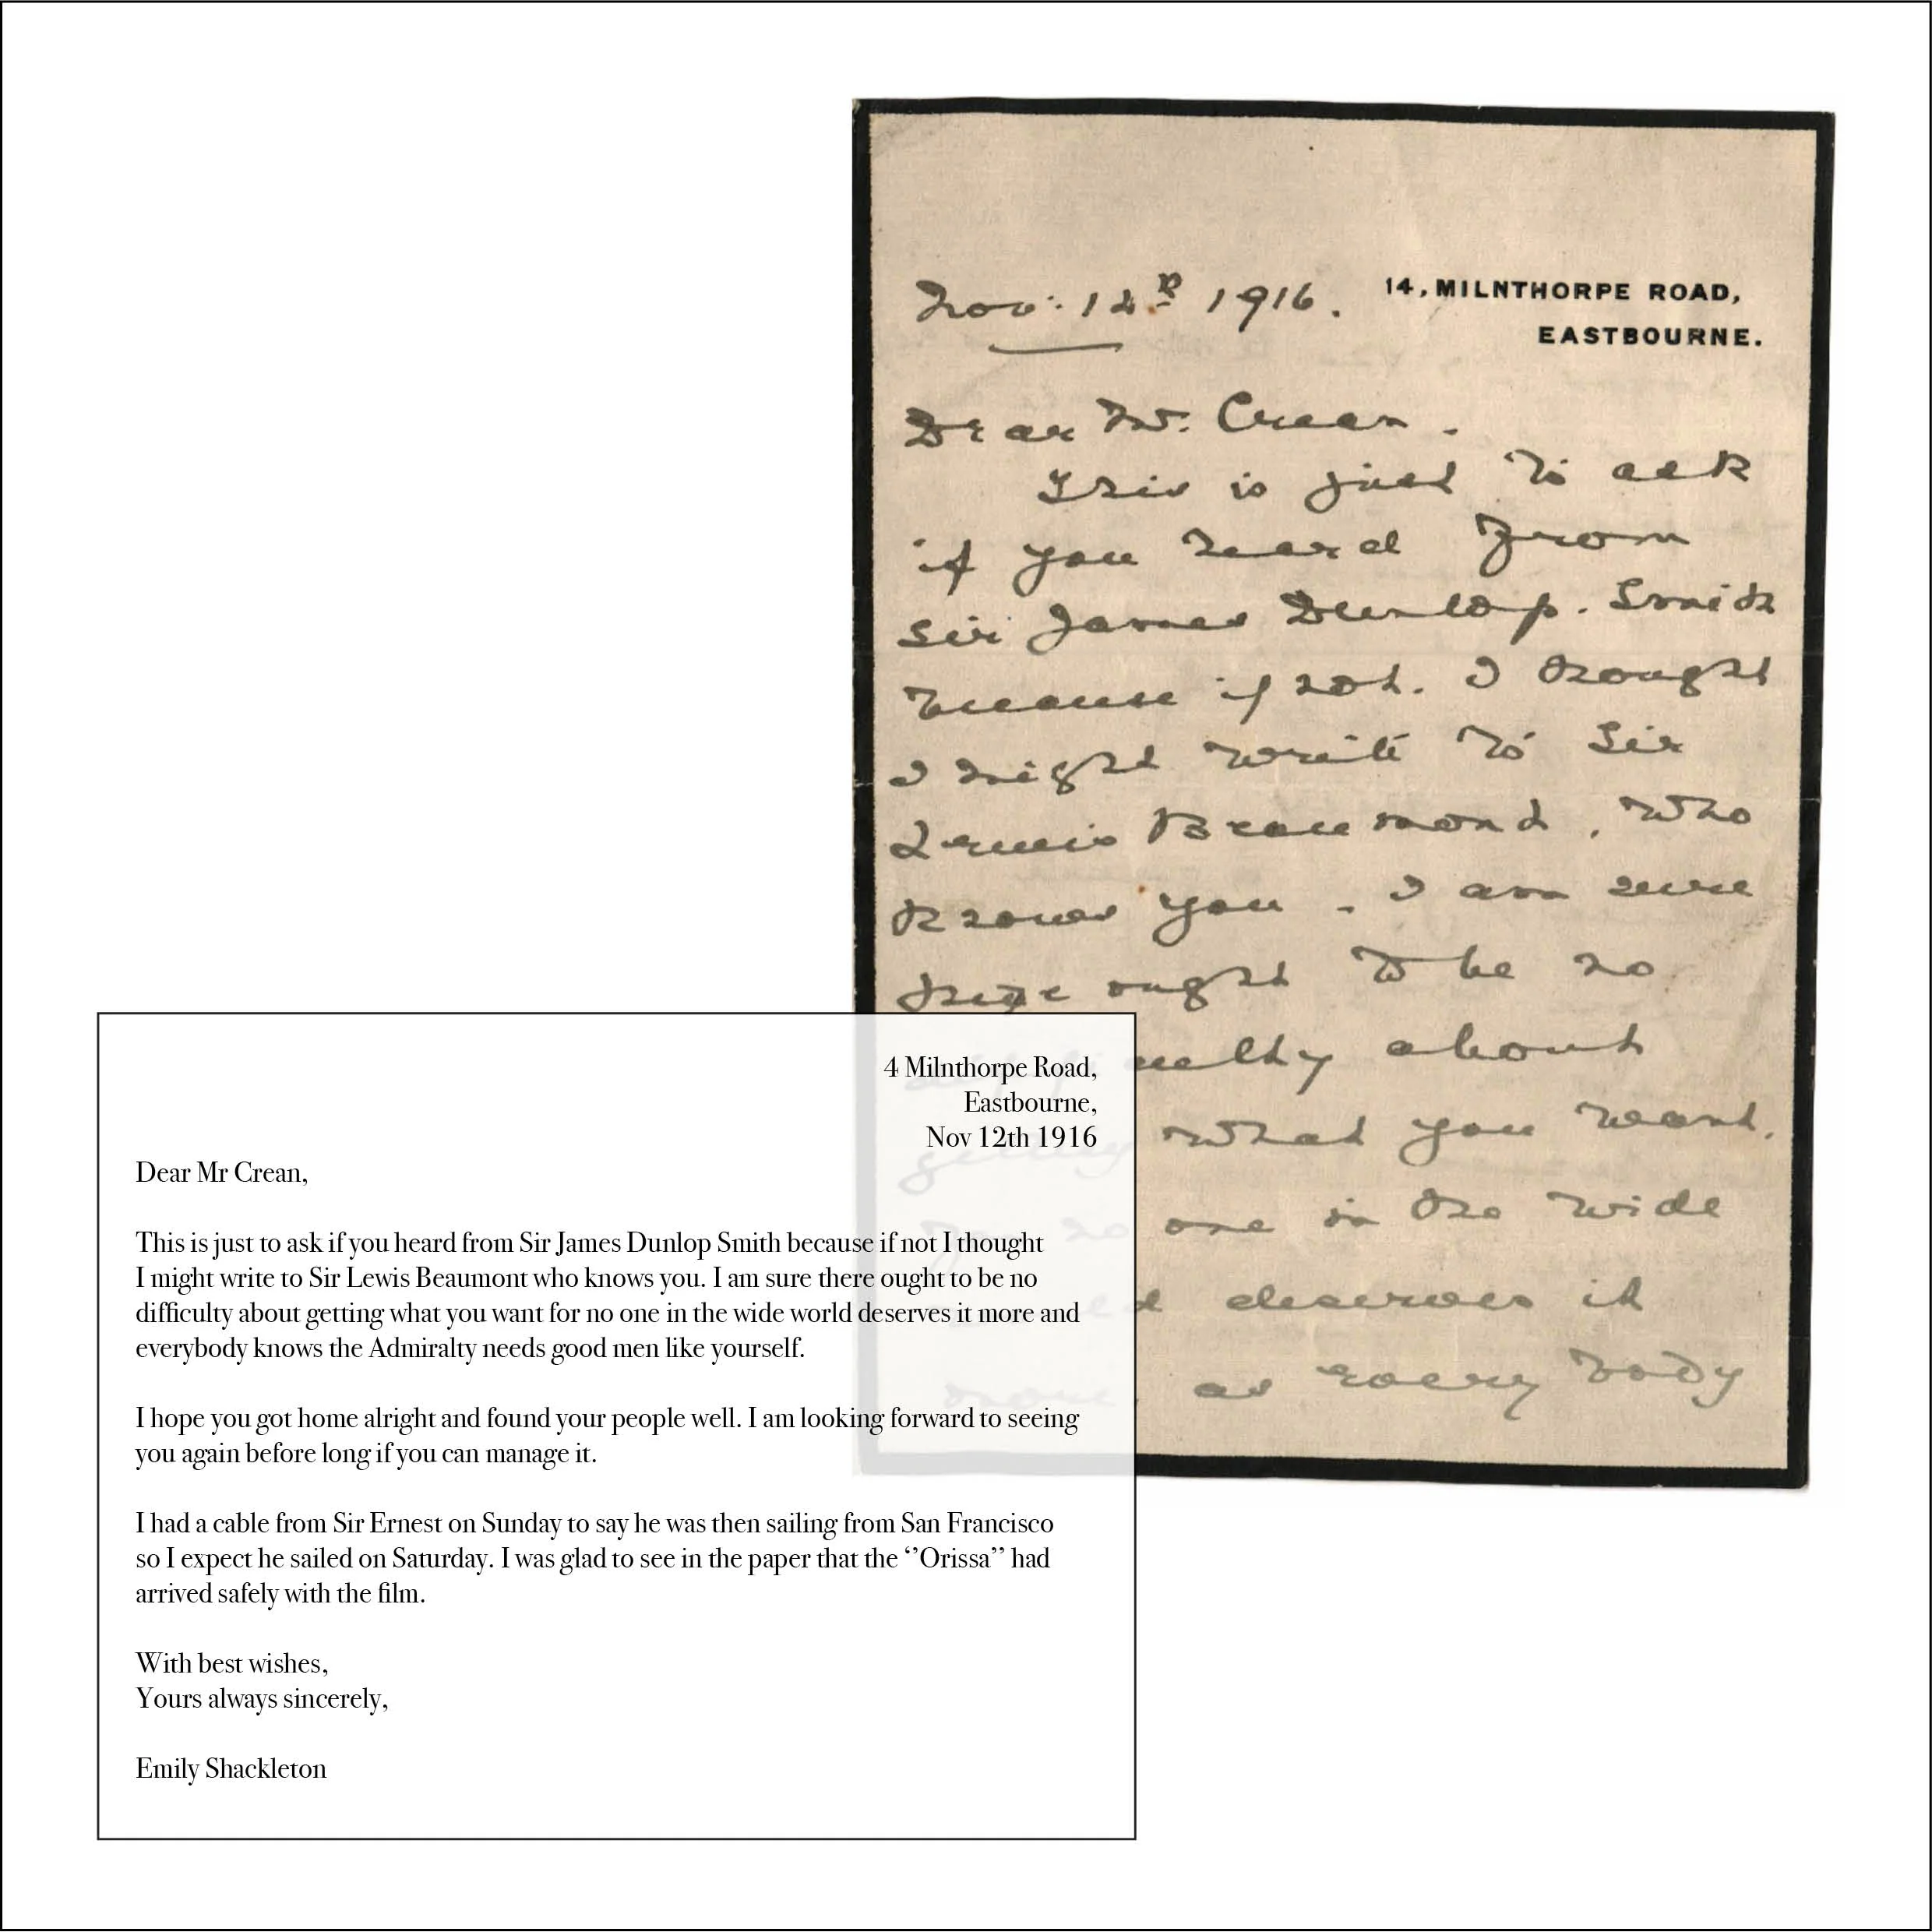 Nov: 12th 1916.
14, MILNTHORPE ROAD,
EASTBOURNE.
Dear Mr. Crean.
This is just to ask
if you heard from
Sir James Dunlop. Smith
because if not. I thought
I might write to Sir
Lewis Beaumont, who
knows you. I am sure
there ought to be no
difficulty about
getting what you want.
for no one in the wide
world deserves it
more. as every body
4 Milnthorpe Road,
Eastbourne,
Nov 12th 1916
Dear Mr Crean,
This is just to ask if you heard from Sir James Dunlop Smith because if not I thought
I might write to Sir Lewis Beaumont who knows you. I am sure there ought to be no
difficulty about getting what you want for no one in the wide world deserves it more and
everybody knows the Admiralty needs good men like yourself.
I hope you got home alright and found your people well. I am looking forward to seeing
you again before long if you can manage it.
I had a cable from Sir Ernest on Sunday to say he was then sailing from San Francisco
so I expect he sailed on Saturday. I was glad to see in the paper that the ‘’Orissa’’ had
arrived safely with the film.
With best wishes,
Yours always sincerely,
Emily Shackleton